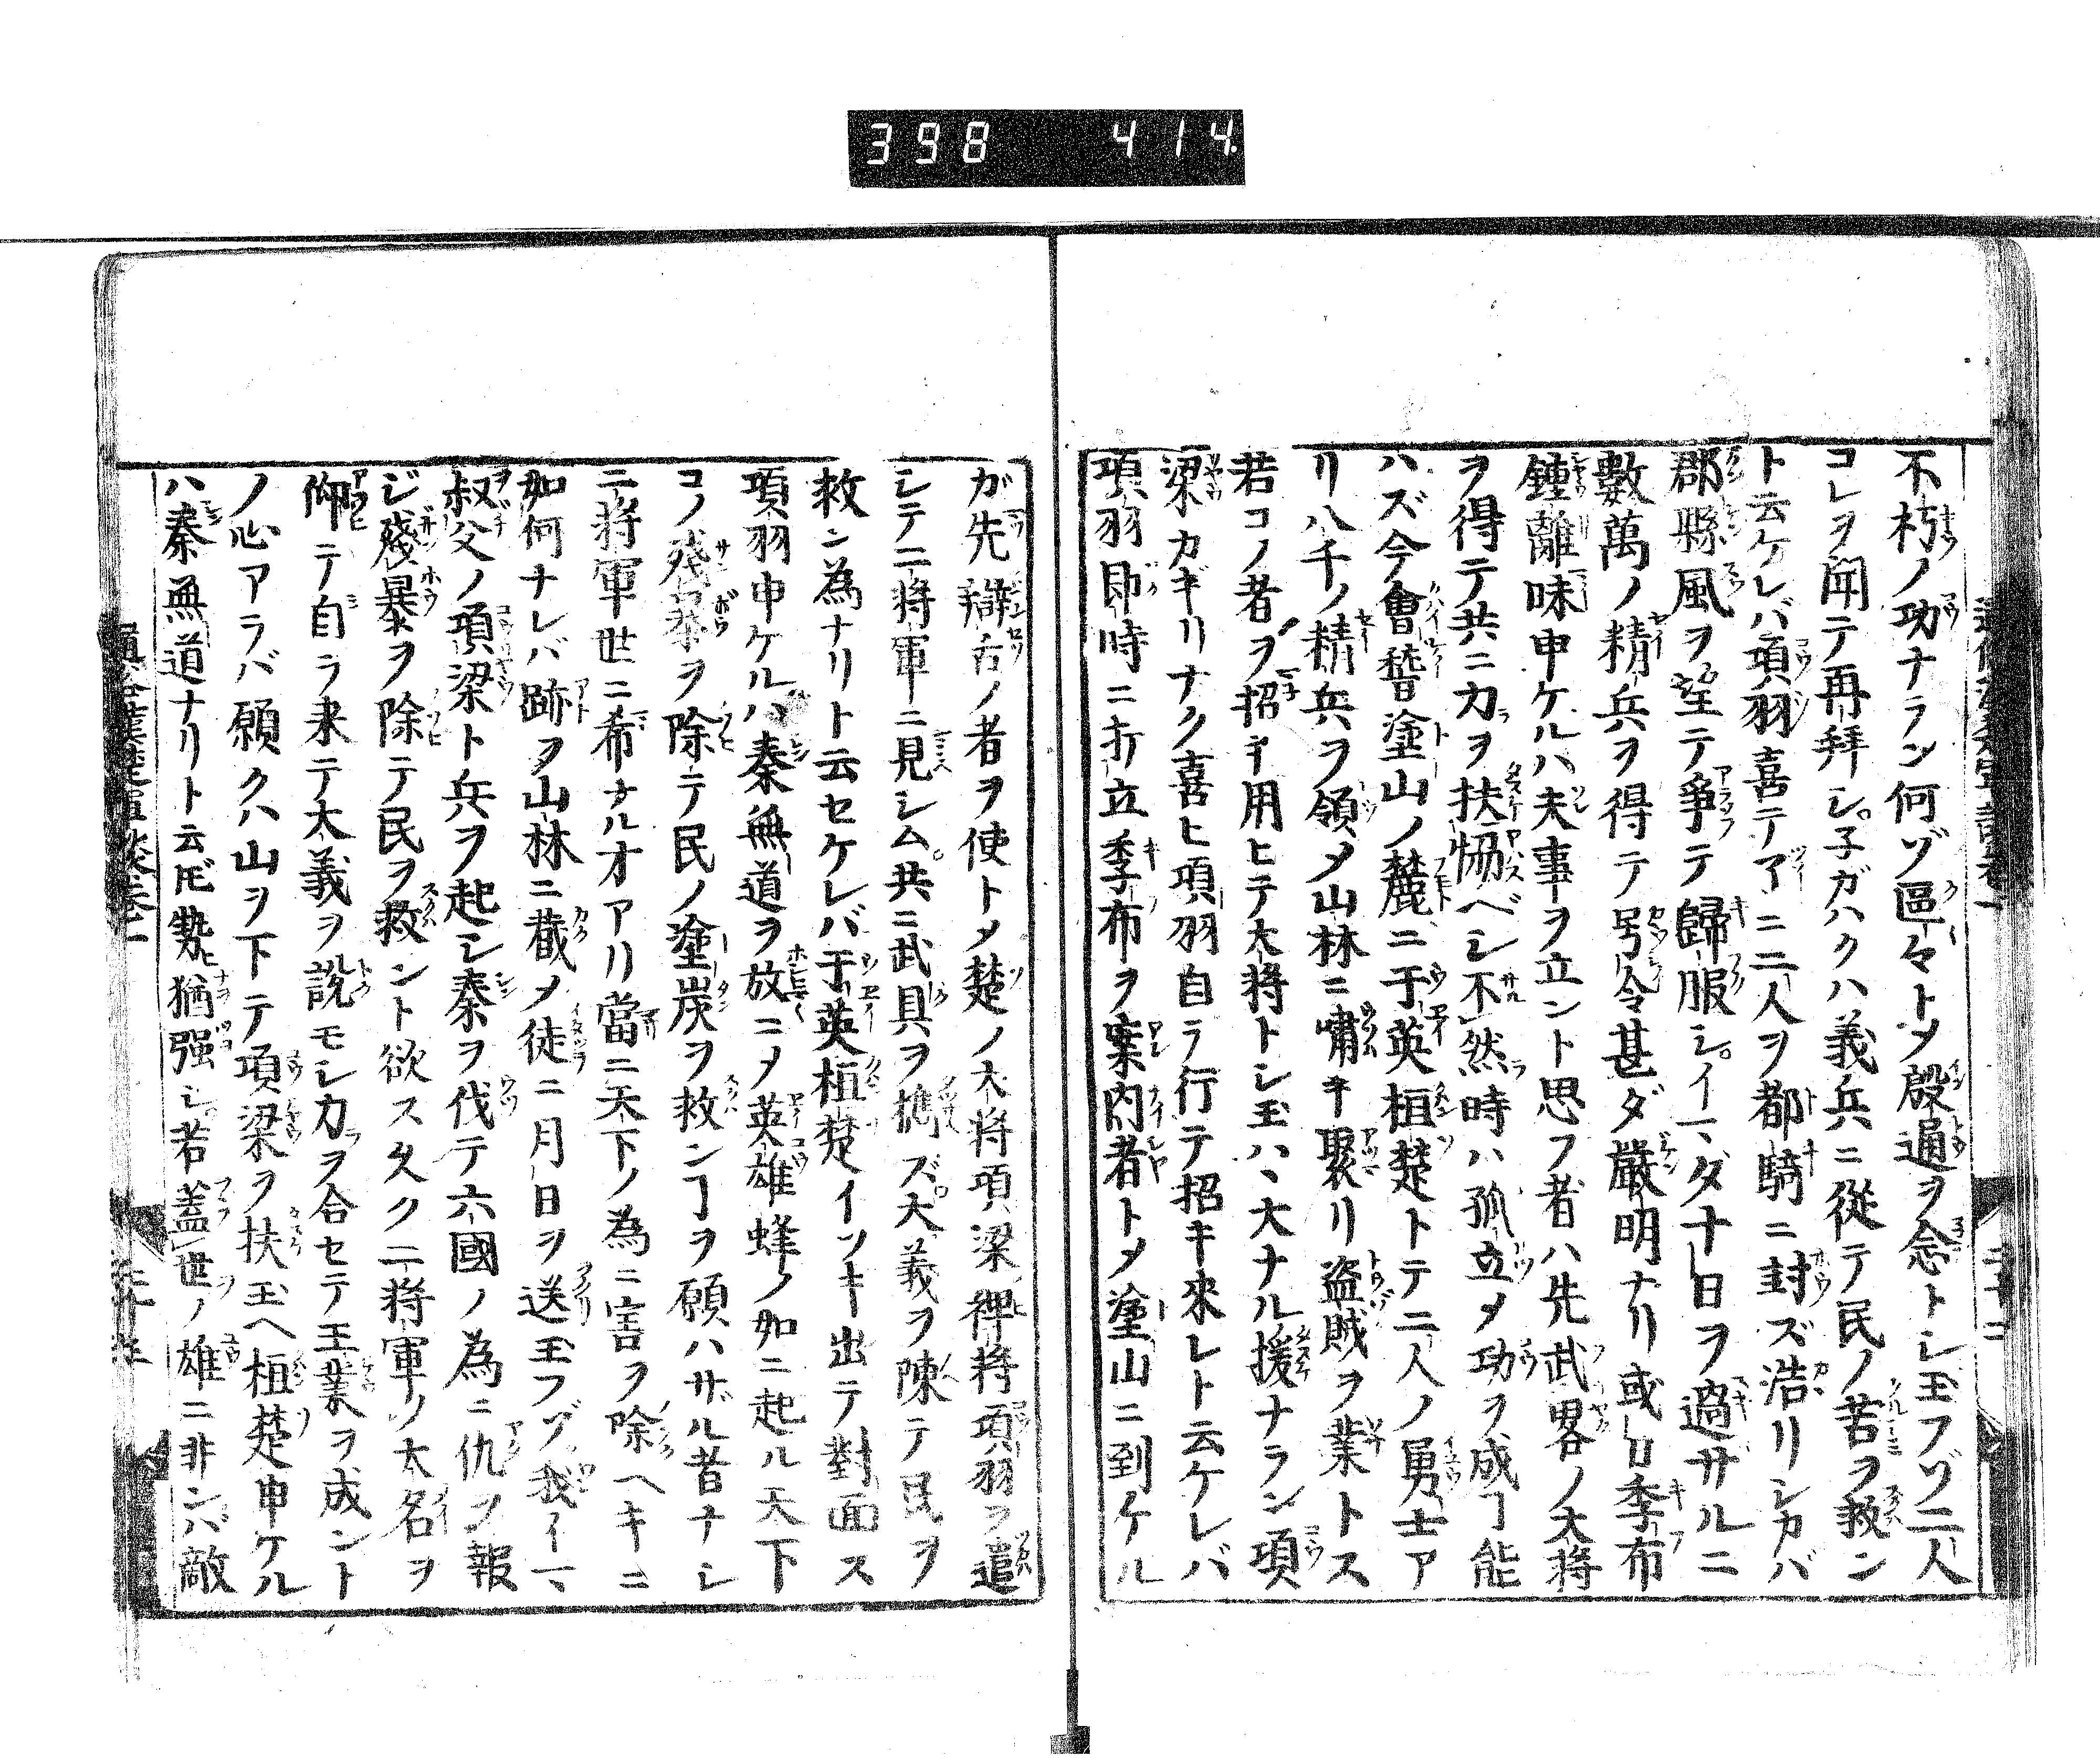 398 414
不朽ノ功ナラン何ゾ區々トメ殷通ヲ念トシ玉フゾ二人
コレヲ聞テ再拜シ子ガハクハ義兵ニ從テ民ノ苦ヲ救ン
ト云ケレバ項羽喜テ了ニ二人ヲ都騎ニ封ズ浩リシカバ
郡縣風ヲ望テ爭テ歸服シイマダ十日ヲ過サルニ
數萬ノ精兵ヲ得テ号令甚ダ嚴明ナリ或日季布
鍾離昧申ケルハ夫事ヲ立ント思フ者ハ先武畧ノ大將
ヲ得テ共ニ力ヲ扶協ベシ不然時ハ孤立メ功ヲ成ヿ能
ハズ今會稽塗山ノ麓ニ于英桓楚トテ二人ノ勇士ア
リ八千ノ精兵ヲ領メ山林ニ嘯キ聚リ盜賊ヲ業トス
若コノ者ヲ招キ用ヒテ大將トシ玉ハヽ大ナル援ナラン項
梁カギリナク喜ヒ項羽自ラ行テ招キ來レト云ケレバ
項羽即時ニ打立季布ヲ案内者トメ塗山ニ到ケル
ガ先辯舌ノ者ヲ使トメ楚ノ大將項梁裨將項羽ヲ遣
シテ二將軍ニ見シム共ニ武具ヲ携ズ大義ヲ陳テ民ヲ
救ン為ナリト云セケレバ于英桓楚イソキ出テ對面ス
項羽申ケルハ秦無道ヲ放ニメ英雄蜂ノ如ニ起ル天下
コノ殘暴ヲ除テ民ノ塗炭ヲ救ンヿヲ願ハザル者ナシ
二將軍世ニ希ナル才アリ當ニ天下ノ為ニ害ヲ除ヘキニ
如何ナレバ跡ヲ山林ニ藏メ徒ニ月日ヲ送玉フゾ我イマ
叔父ノ項梁ト兵ヲ起シ秦ヲ伐テ六國ノ為ニ仇ヲ報
ジ殘暴ヲ除テ民ヲ救ント欲ス久ク二將軍ノ大名ヲ
仰テ自ラ来テ大義ヲ說モシ力ヲ合セテ王業ヲ成ント
ノ心アラバ願クハ山ヲ下テ項梁ヲ扶玉ヘ桓楚申ケル
ハ秦無道ナリト云𪜈勢猶強シ若蓋世ノ雄ニ非ンバ敵